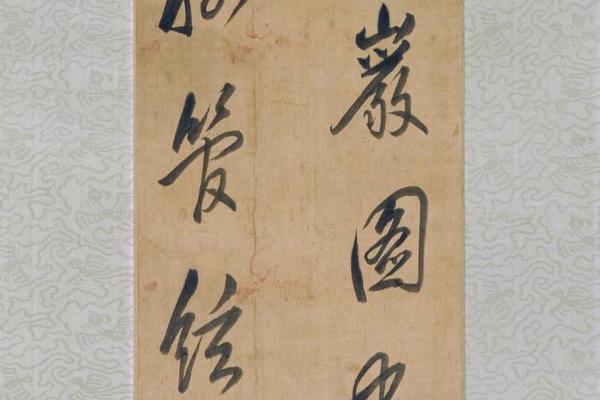 巖圖
管絃